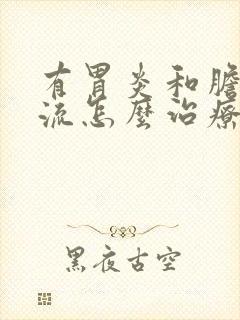 有胃炎和膽
流怎麼治療
黑夜古空